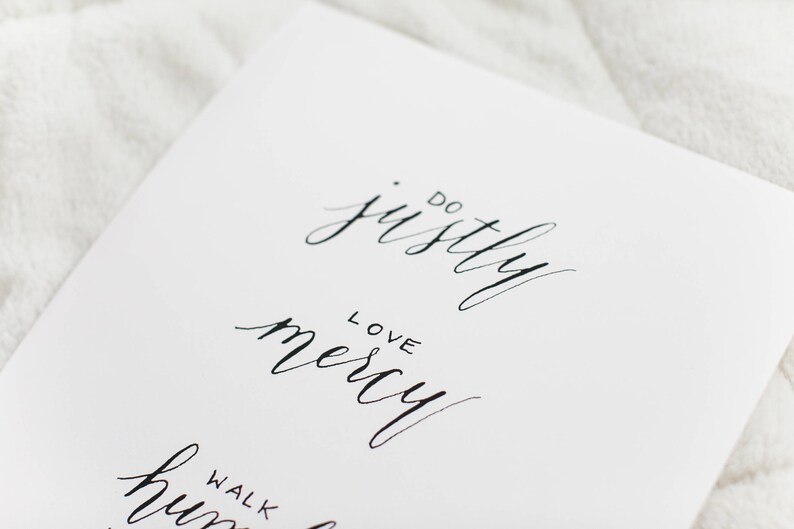 DO
justly
LOVE
mercy
WALK